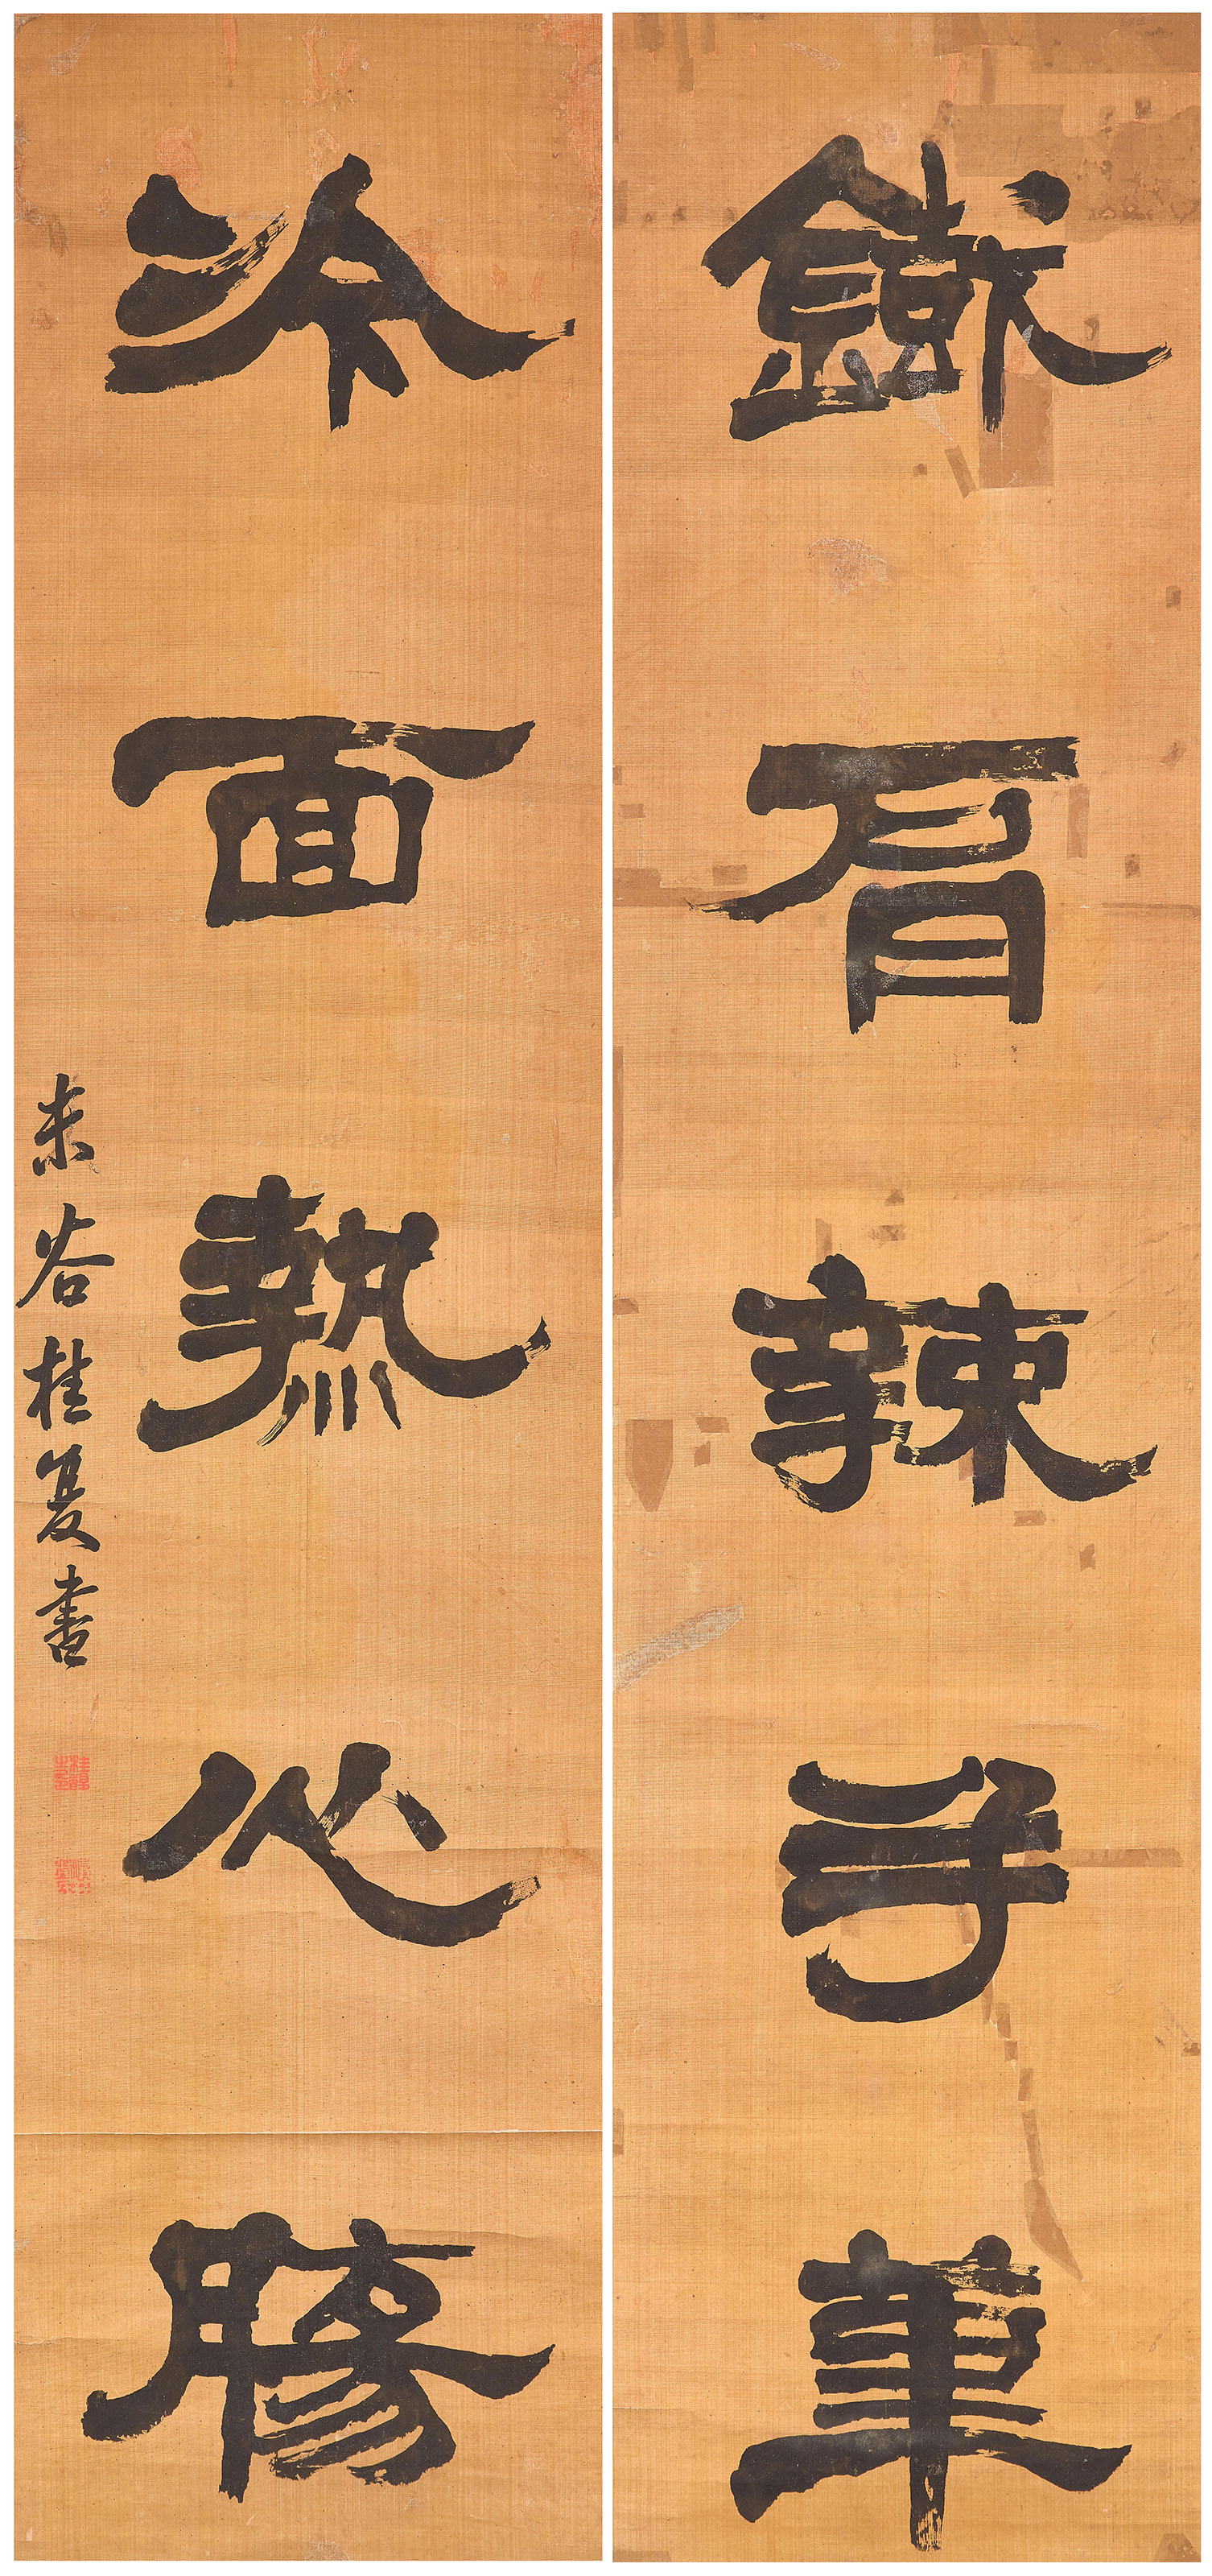 鐵肩辣手筆
冷面熱心腸
未谷桂馥書